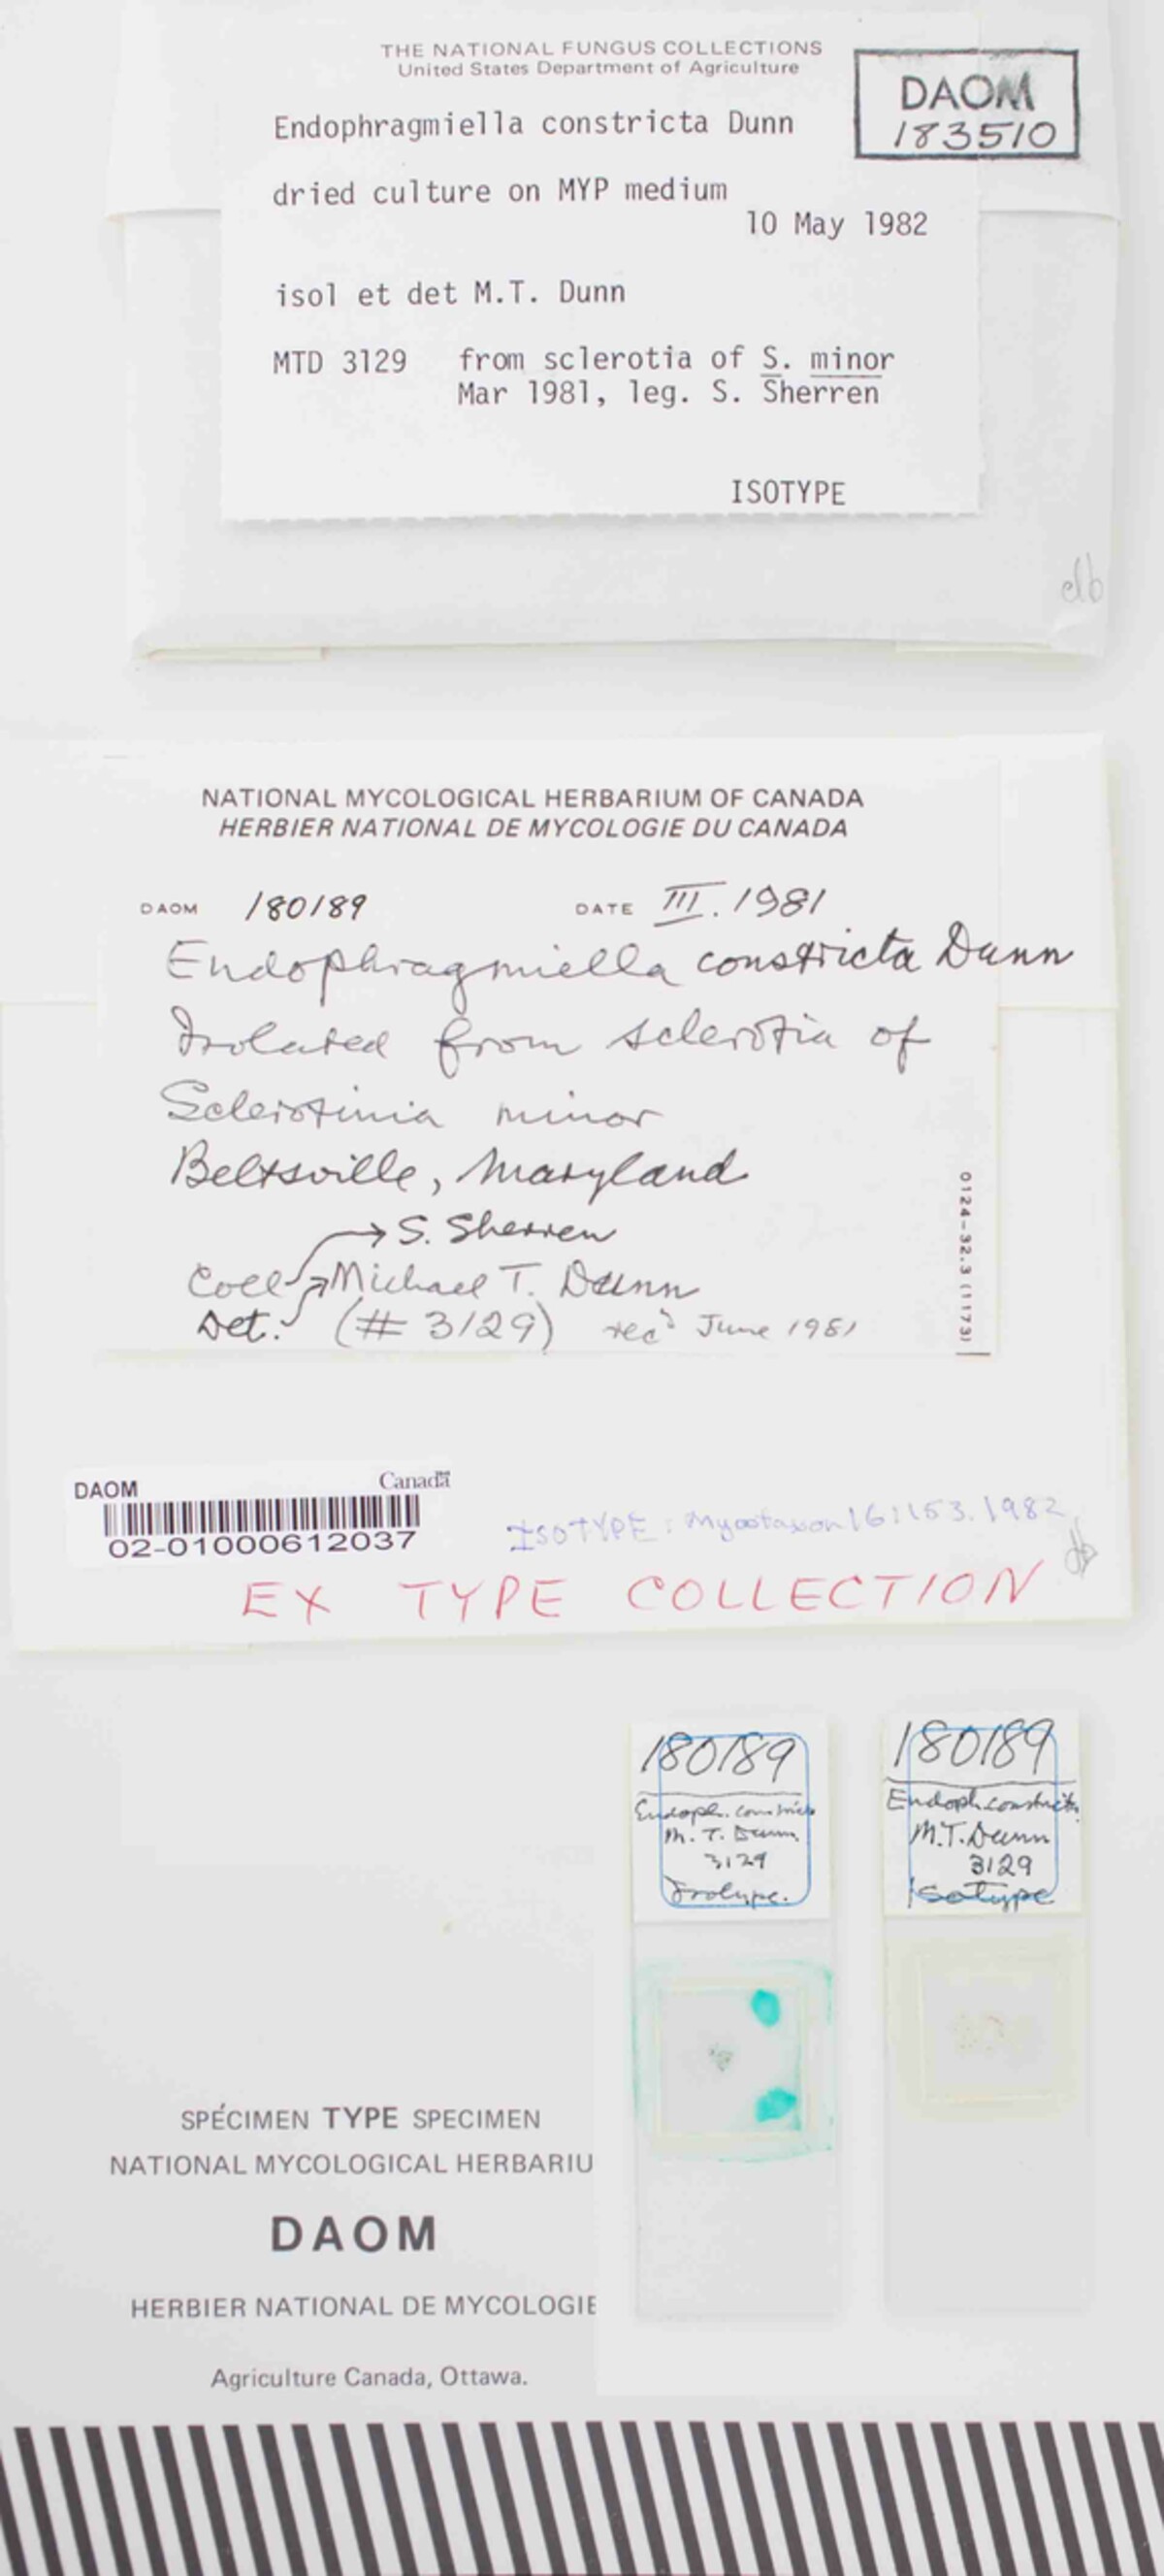 THE NATIONAL FUNGUS COLLECTIONS
United States Department of Agriculture
DAOM
183510
Endophragmiella constricta Dunn
dried culture on MYP medium
10 May 1982
isol et det M.T. Dunn
MTD 3129 from sclerotia of S. minor
Mar 1981, leg. S. Sherren
ISOTYPE
db
NATIONAL MYCOLOGICAL HERBARIUM OF CANADA
HERBIER NATIONAL DE MYCOLOGIE DU CANADA
DAOM 180189 DATE III. 1981
Endophragmiella constricta Dunn
Isolated from sclerotia of
Sclerotinia minor
Beltsville, Maryland
→ S. Sherren
Coll Michael T. Dunn
Det. (# 3129) rec'd June 1981
0124-32.3 (1173)
DAOM Canada
02-01000612037
ISOTYPE: Mycotaxon 16:153. 1982
db
EX TYPE COLLECTION
180189
Endoph. constricta
M. T. Dunn
3129
Isotype.
180189
Endoph. constricta
M.T. Dunn
3129
Isotype
SPÉCIMEN TYPE SPECIMEN
NATIONAL MYCOLOGICAL HERBARIU
DAOM
HERBIER NATIONAL DE MYCOLOGIE
Agriculture Canada, Ottawa.